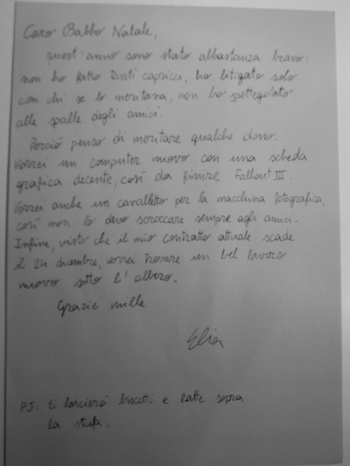 Caro Babbo Natale,
quest'anno sono stato abbastanza bravo:
non ho fatto tanti capricci, ho litigato solo
con chi se lo meritava, non ho spettegolato
alle spalle degli amici.
Perciò penso di meritare qualche dono.
Vorrei un computer nuovo con una scheda
grafica decente, così da finire Fallout III.
Vorrei anche un cavalletto per la macchina fotografica,
così non lo devo scroccare sempre agli amici.
Infine, visto che il mio contratto attuale scade
il 24 dicembre, vorrei trovare un bel lavoro
nuovo sotto l'albero.
Grazie mille
Elia
PS: ti lascierò biscotti e latte sopra
la stufa.